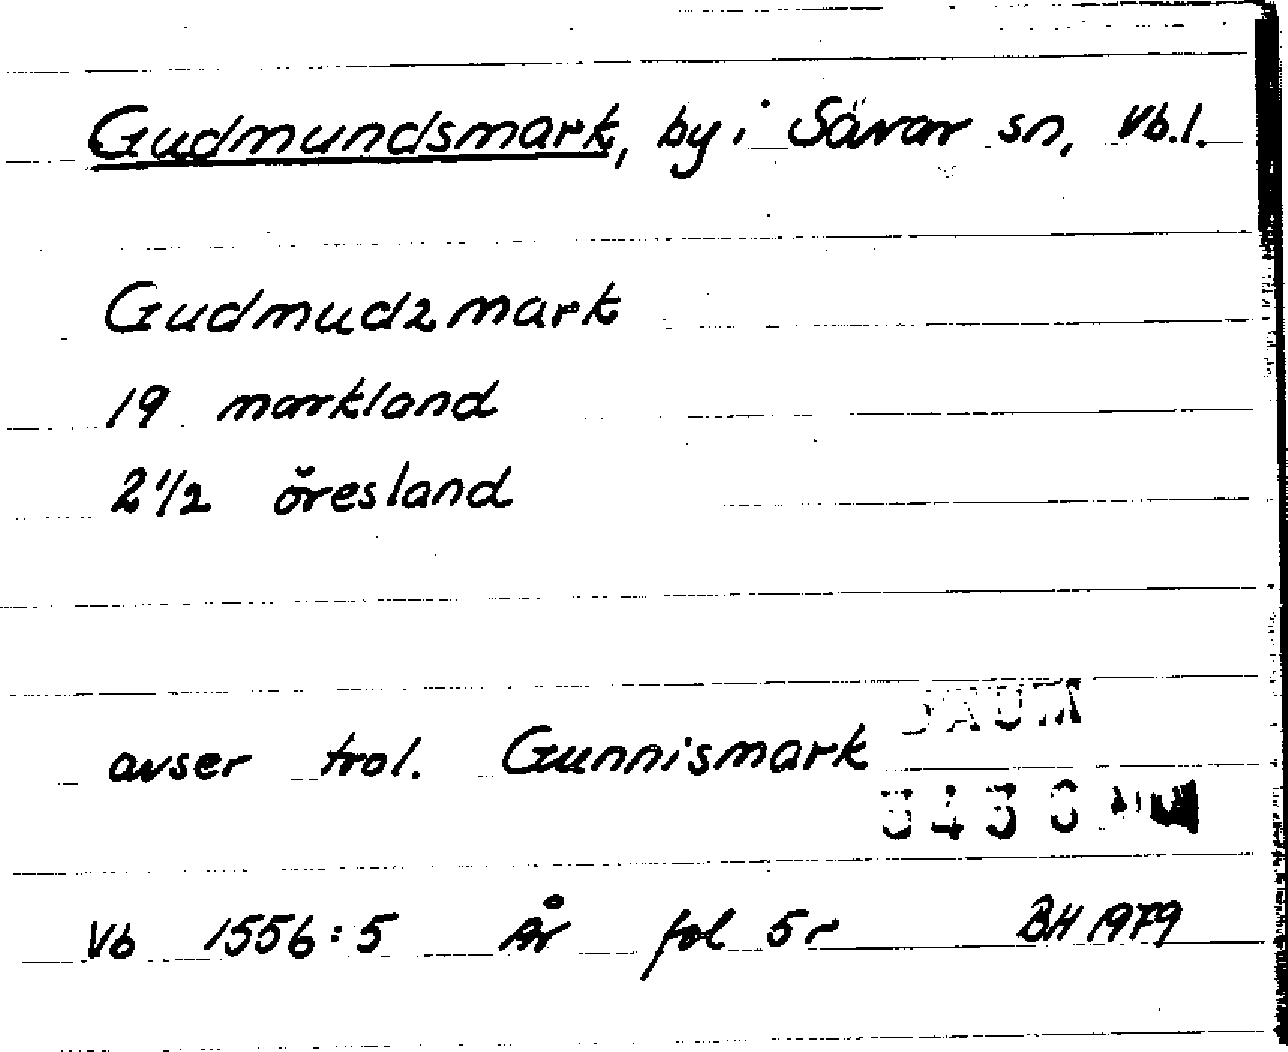 Gudmundsmark, by i Sävar sn, Vb.l.
Gudmudzmark
19 markland
2 1/2 öresland
DAUM
avser trol. Gunnismark
Vb 1556:5 År fol 5r BH 1979